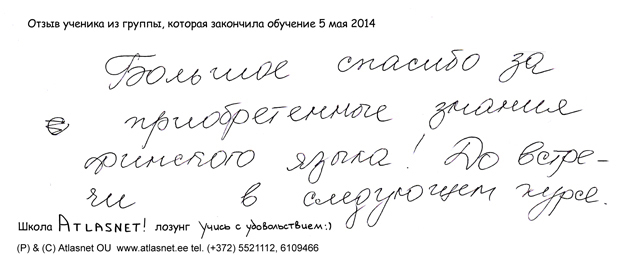 Отзыв ученика из группы, которая закончила обучение 5 мая 2014
Большое спасибо за
приобретенные знания
финского языка! До встре-
чи в следующем курсе.
Школа ATLASNET! лозунг Учись с удовольствием:)
(P) & (C) Atlasnet OU www.atlasnet.ee tel. (+372) 5521112, 6109466